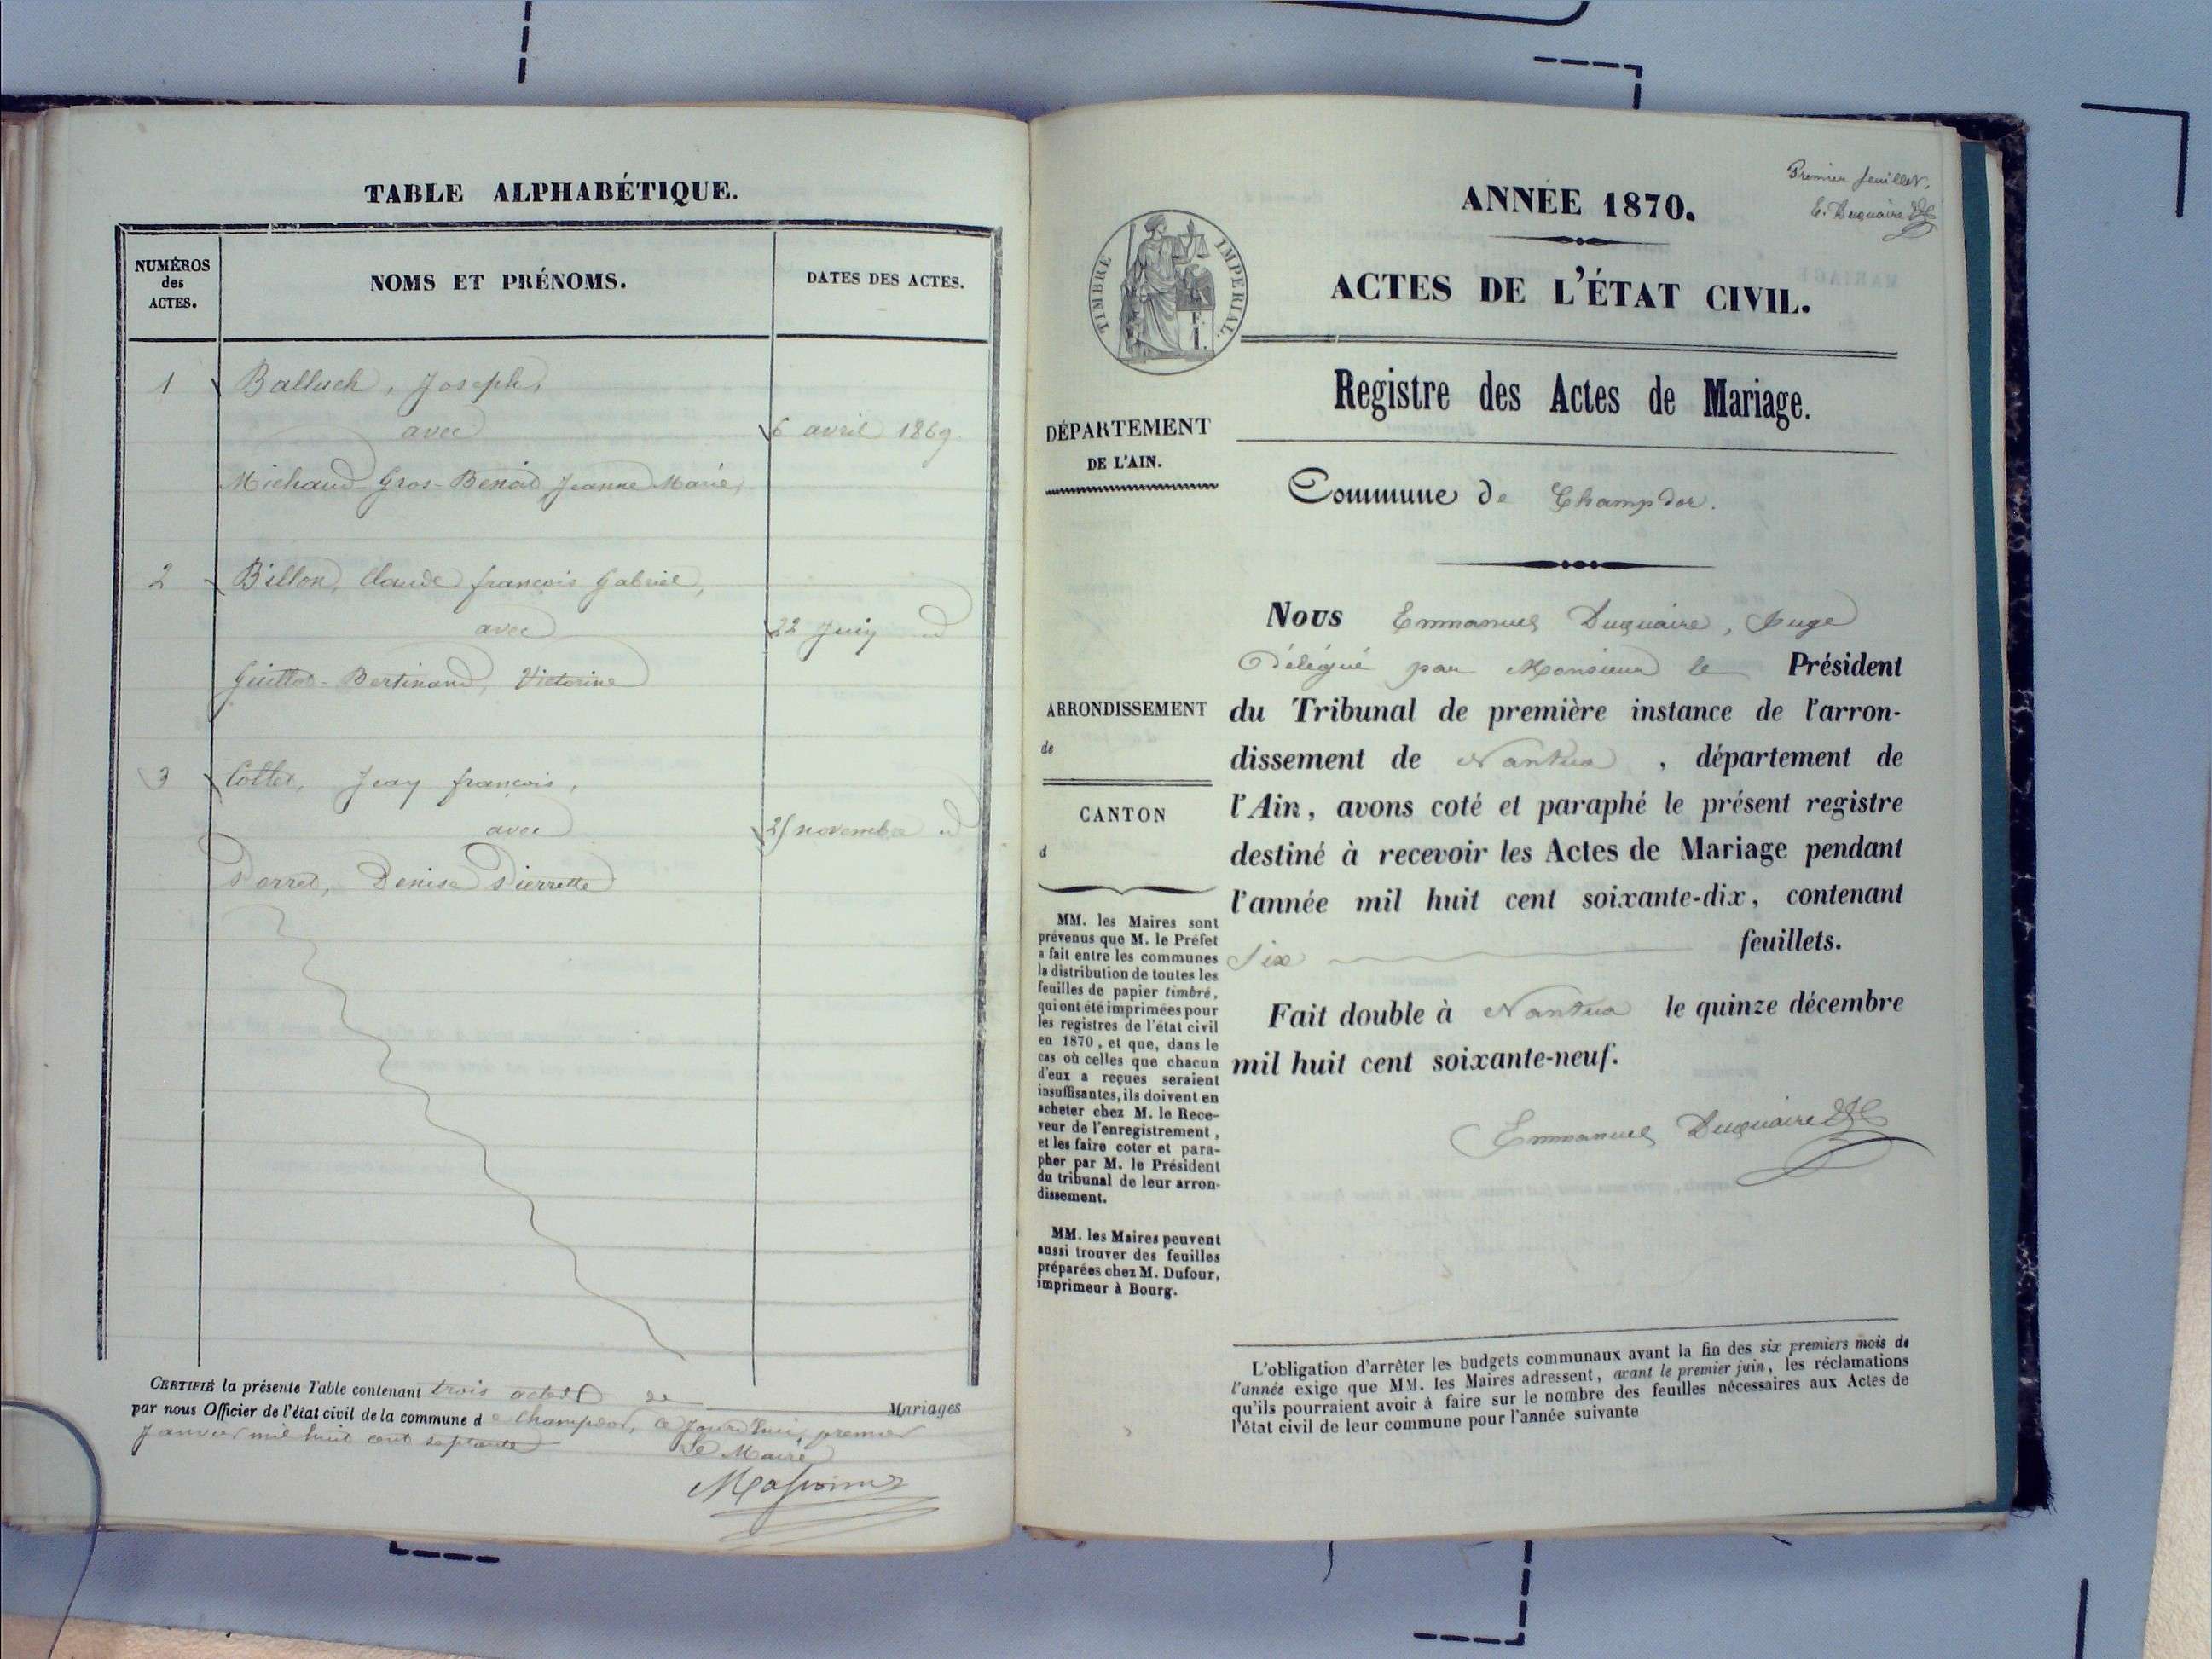 TABLE ALPHABÉTIQUE.
NUMÉROS
des
ACTES.
NOMS ET PRÉNOMS.
DATES DES ACTES.
1 Balluch, Joseph,
avec
6 avril 1869.
Michaud-Gros-Benoid Jeanne Marie,
2 Billon, Claude françois Gabriel,
avec
22 Juin id
Guillot-Bertinand, Victorine
3 Collet, Jean françois,
avec
25 novembre id
Perret, Denise Pierrette
CERTIFIÉ la présente Table contenant trois actes de Mariages
par nous Officier de l'état civil de la commune de Champdor, ce Jourd'hui, premier
Janvier mil huit cent septante
Le Maire
Premier feuillet.
E. Duquaire
ANNÉE 1870.
ACTES DE L'ÉTAT CIVIL.
TIMBRE IMPÉRIAL.
Registre des Actes de Mariage.
DÉPARTEMENT
DE L'AIN.
Commune de Champdor.
Nous Emmanuel Duquaire, Juge
Délégué par Monsieur le Président
ARRONDISSEMENT
de
du Tribunal de première instance de l'arron-
dissement de Nantua, département de
l'Ain, avons coté et paraphé le présent registre
destiné à recevoir les Actes de Mariage pendant
l'année mil huit cent soixante-dix, contenant
Six feuillets.
CANTON
d
MM. les Maires sont
prévenus que M. le Préfet
a fait entre les communes
la distribution de toutes les
feuilles de papier timbré,
qui ont été imprimées pour
les registres de l'état civil
en 1870, et que, dans le
cas où celles que chacun
d'eux a reçues seraient
insuffisantes, ils doivent en
acheter chez M. le Rece-
veur de l'enregistrement,
et les faire coter et para-
pher par M. le Président
du tribunal de leur arron-
dissement.
MM. les Maires peuvent
aussi trouver des feuilles
préparées chez M. Dufour,
imprimeur à Bourg.
Fait double à Nantua le quinze décembre
mil huit cent soixante-neuf.
Emmanuel Duquaire
L'obligation d'arrêter les budgets communaux avant la fin des six premiers mois de
l'année exige que MM. les Maires adressent, avant le premier juin, les réclamations
qu'ils pourraient avoir à faire sur le nombre des feuilles nécessaires aux Actes de
l'état civil de leur commune pour l'année suivante